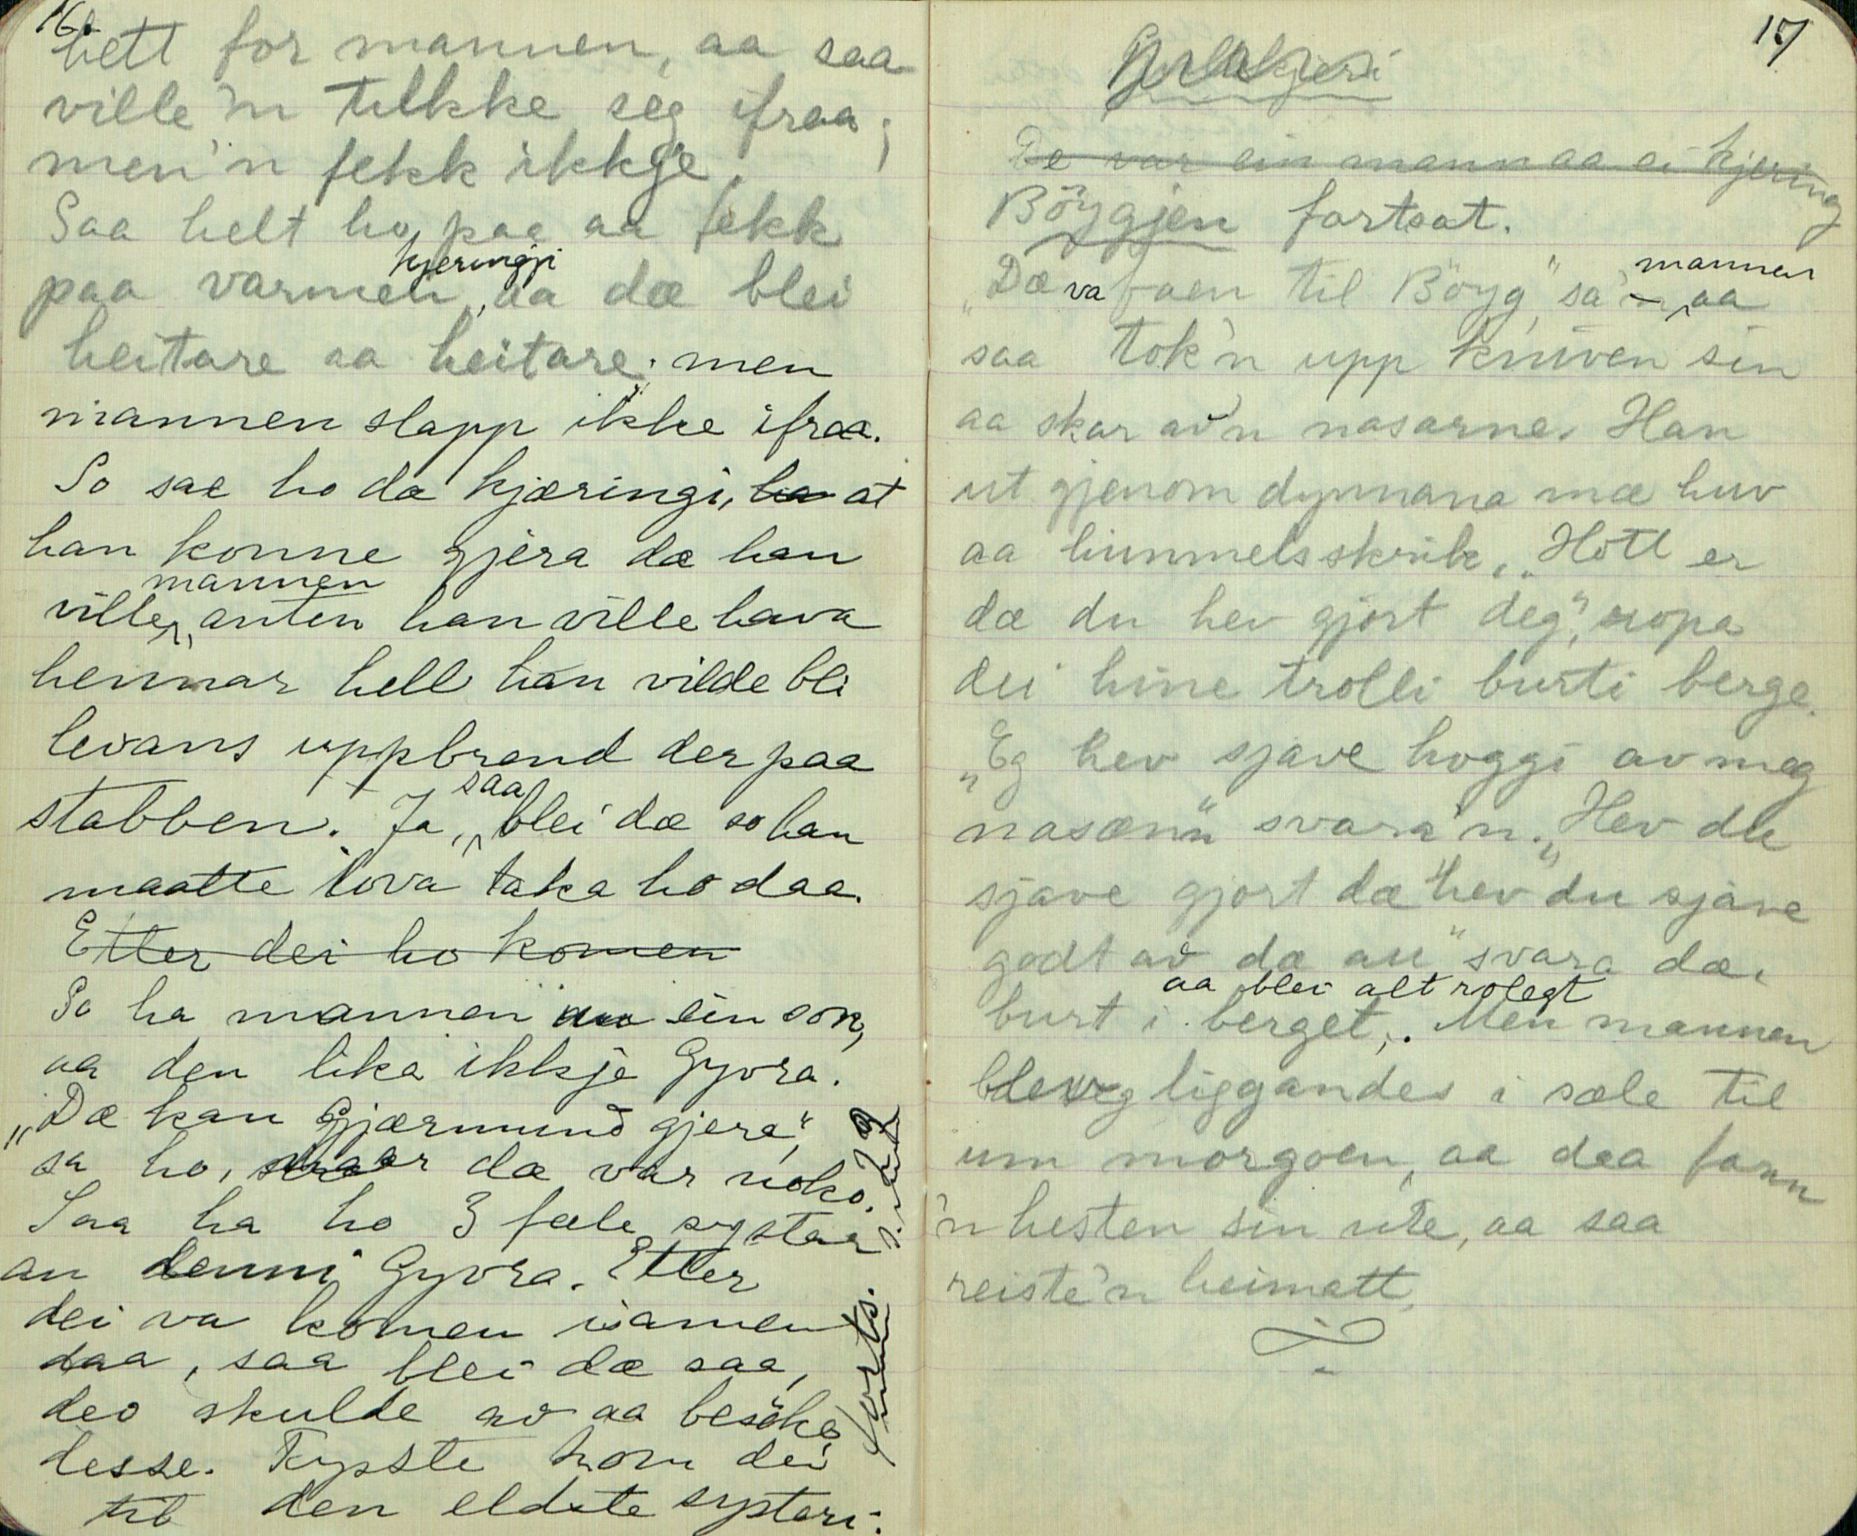 16.
hett for mannen, aa saa
ville'n tilkke seg ifraa;
men'n fekk ikkje.
Saa helt ho paa aa fekk
kjeringji
paa varmen, aa dæ blei
heitare aa heitare; men
mannen slapp ikke ifraa.
So sae ho dæ kjæringi, ha at
han konne gjera dæ han
mannen
ville, anten han ville hava
hennar hell han vilde bli
levans uppbrend der paa
saa
stabben. Ja, blei dæ so han
maatte lova taka ho daa.
Etter dei ho komen
So ha mannen ein son,
aa den lika ikkje Gyvra.
"Dæ kan Gjærmund gjera",
sa ho, naar dæ var noko.
Saa ha ho 3 fæle systaa
an denni Gyvra. Etter
dei va komen isamen
daa, saa blei dæ saa,
deo skulde av aa besöke
desse. Fypste kom dei
til den eldste systeri.
forts. s. 19
17
De var ein mann aa ei kjering
Böygjen fortsat.
mannen
"Dæ va faen til Böyg," sa'n aa
saa tok'n upp kniven sin
aa skar av'n nasarne. Han
ut gjenom dynnana mæ huv
aa himmelsskrik, "Hott er
dæ du hev gjort deg", ropa
dei hine trolli burti berge.
"Eg hev sjave hoggi av meg
nasæn" svara'n. "Hev du
sjave gjort dæ hev du sjave
godt av dæ au" svara dæ
aa blei alt rolegt
burt i berget,. Men mannen
blei liggandes i sæle til
um morgoen, aa daa fann
'n hesten sin ute, aa saa
reiste'n heimatt.